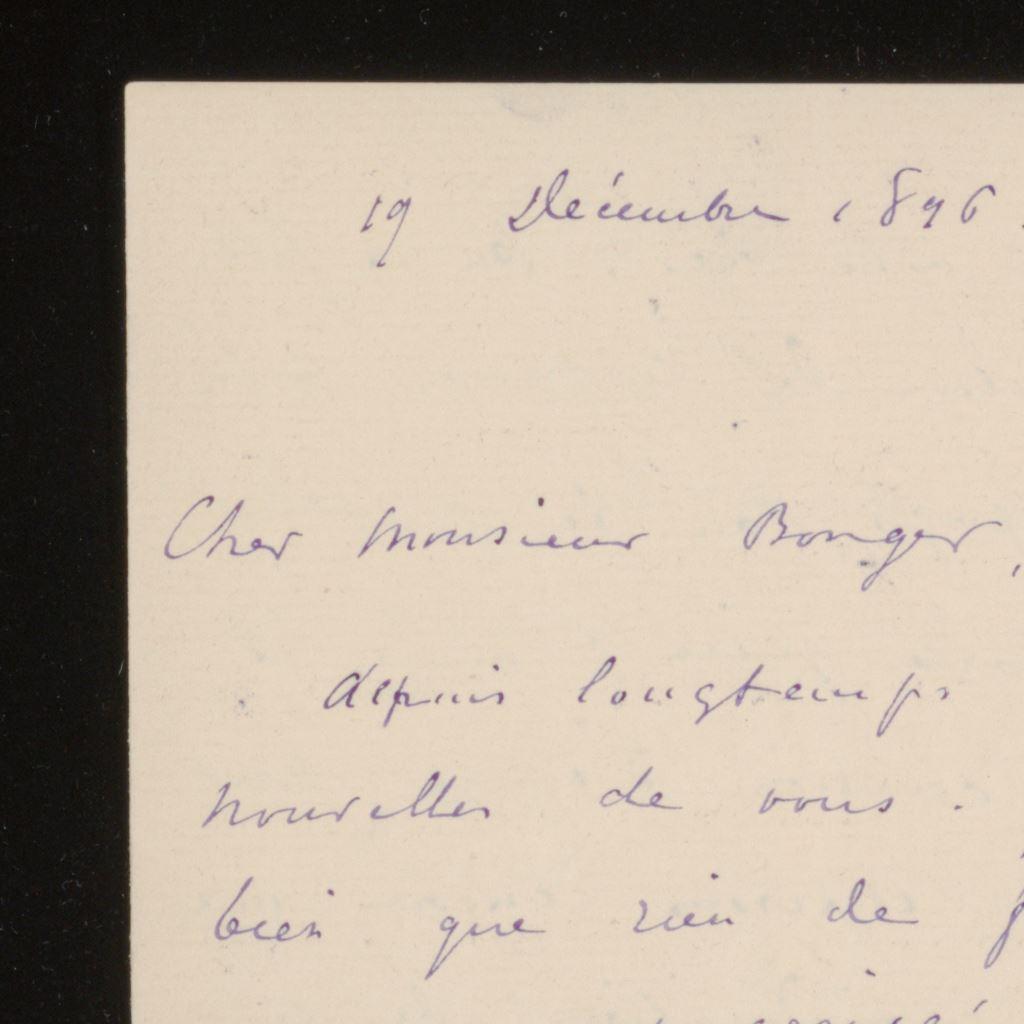 19 Décembre 1896.
Cher Monsieur Bonger,
depuis longtemps
nouvelles de vous.
bien que rien de